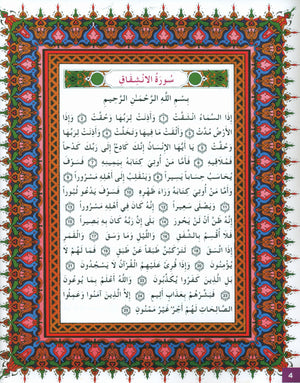 سُورَةُ الانْشِقَاقِ
بِسْمِ اللَّهِ الرَّحْمَنِ الرَّحِيمِ
إِذَا السَّمَاءُ انْشَقَّتْ ① وَأَذِنَتْ لِرَبِّهَا وَحُقَّتْ ② وَإِذَا
الأَرْضُ مُدَّتْ ③ وَأَلْقَتْ مَا فِيهَا وَتَخَلَّتْ ④ وَأَذِنَتْ لِرَبِّهَا
وَحُقَّتْ ⑤ يَا أَيُّهَا الإِنْسَانُ إِنَّكَ كَادِحٌ إِلَى رَبِّكَ كَدْحاً
فَمُلاقِيهِ ⑥ فَأَمَّا مَنْ أُوتِيَ كِتَابَهُ بِيَمِينِهِ ⑦ فَسَوْفَ
يُحَاسَبُ حِسَاباً يَسِيراً ⑧ وَيَنْقَلِبُ إِلَى أَهْلِهِ مَسْرُوراً ⑨
وَأَمَّا مَنْ أُوتِيَ كِتَابَهُ وَرَاءَ ظَهْرِهِ ⑩ فَسَوْفَ يَدْعُو ثُبُوراً
⑪ وَيَصْلَى سَعِيراً ⑫ إِنَّهُ كَانَ فِي أَهْلِهِ مَسْرُوراً ⑬
إِنَّهُ ظَنَّ أَنْ لَنْ يَحُورَ ⑭ بَلَى إِنَّ رَبَّهُ كَانَ بِهِ بَصِيراً ⑮
فَلا أُقْسِمُ بِالشَّفَقِ ⑯ وَاللَّيْلِ وَمَا وَسَقَ ⑰ وَالْقَمَرِ
إِذَا اتَّسَقَ ⑱ لَتَرْكَبُنَّ طَبَقاً عَنْ طَبَقٍ ⑲ فَمَا لَهُمْ لا
يُؤْمِنُونَ ⑳ وَإِذَا قُرِئَ عَلَيْهِمُ الْقُرْآنُ لا يَسْجُدُونَ ㉑
بَلِ الَّذِينَ كَفَرُوا يُكَذِّبُونَ ㉒ وَاللَّهُ أَعْلَمُ بِمَا يُوعُونَ
㉓ فَبَشِّرْهُمْ بِعَذَابٍ أَلِيمٍ ㉔ إِلاَّ الَّذِينَ آمَنُوا وَعَمِلُوا
الصَّالِحَاتِ لَهُمْ أَجْرٌ غَيْرُ مَمْنُونٍ ㉕
4